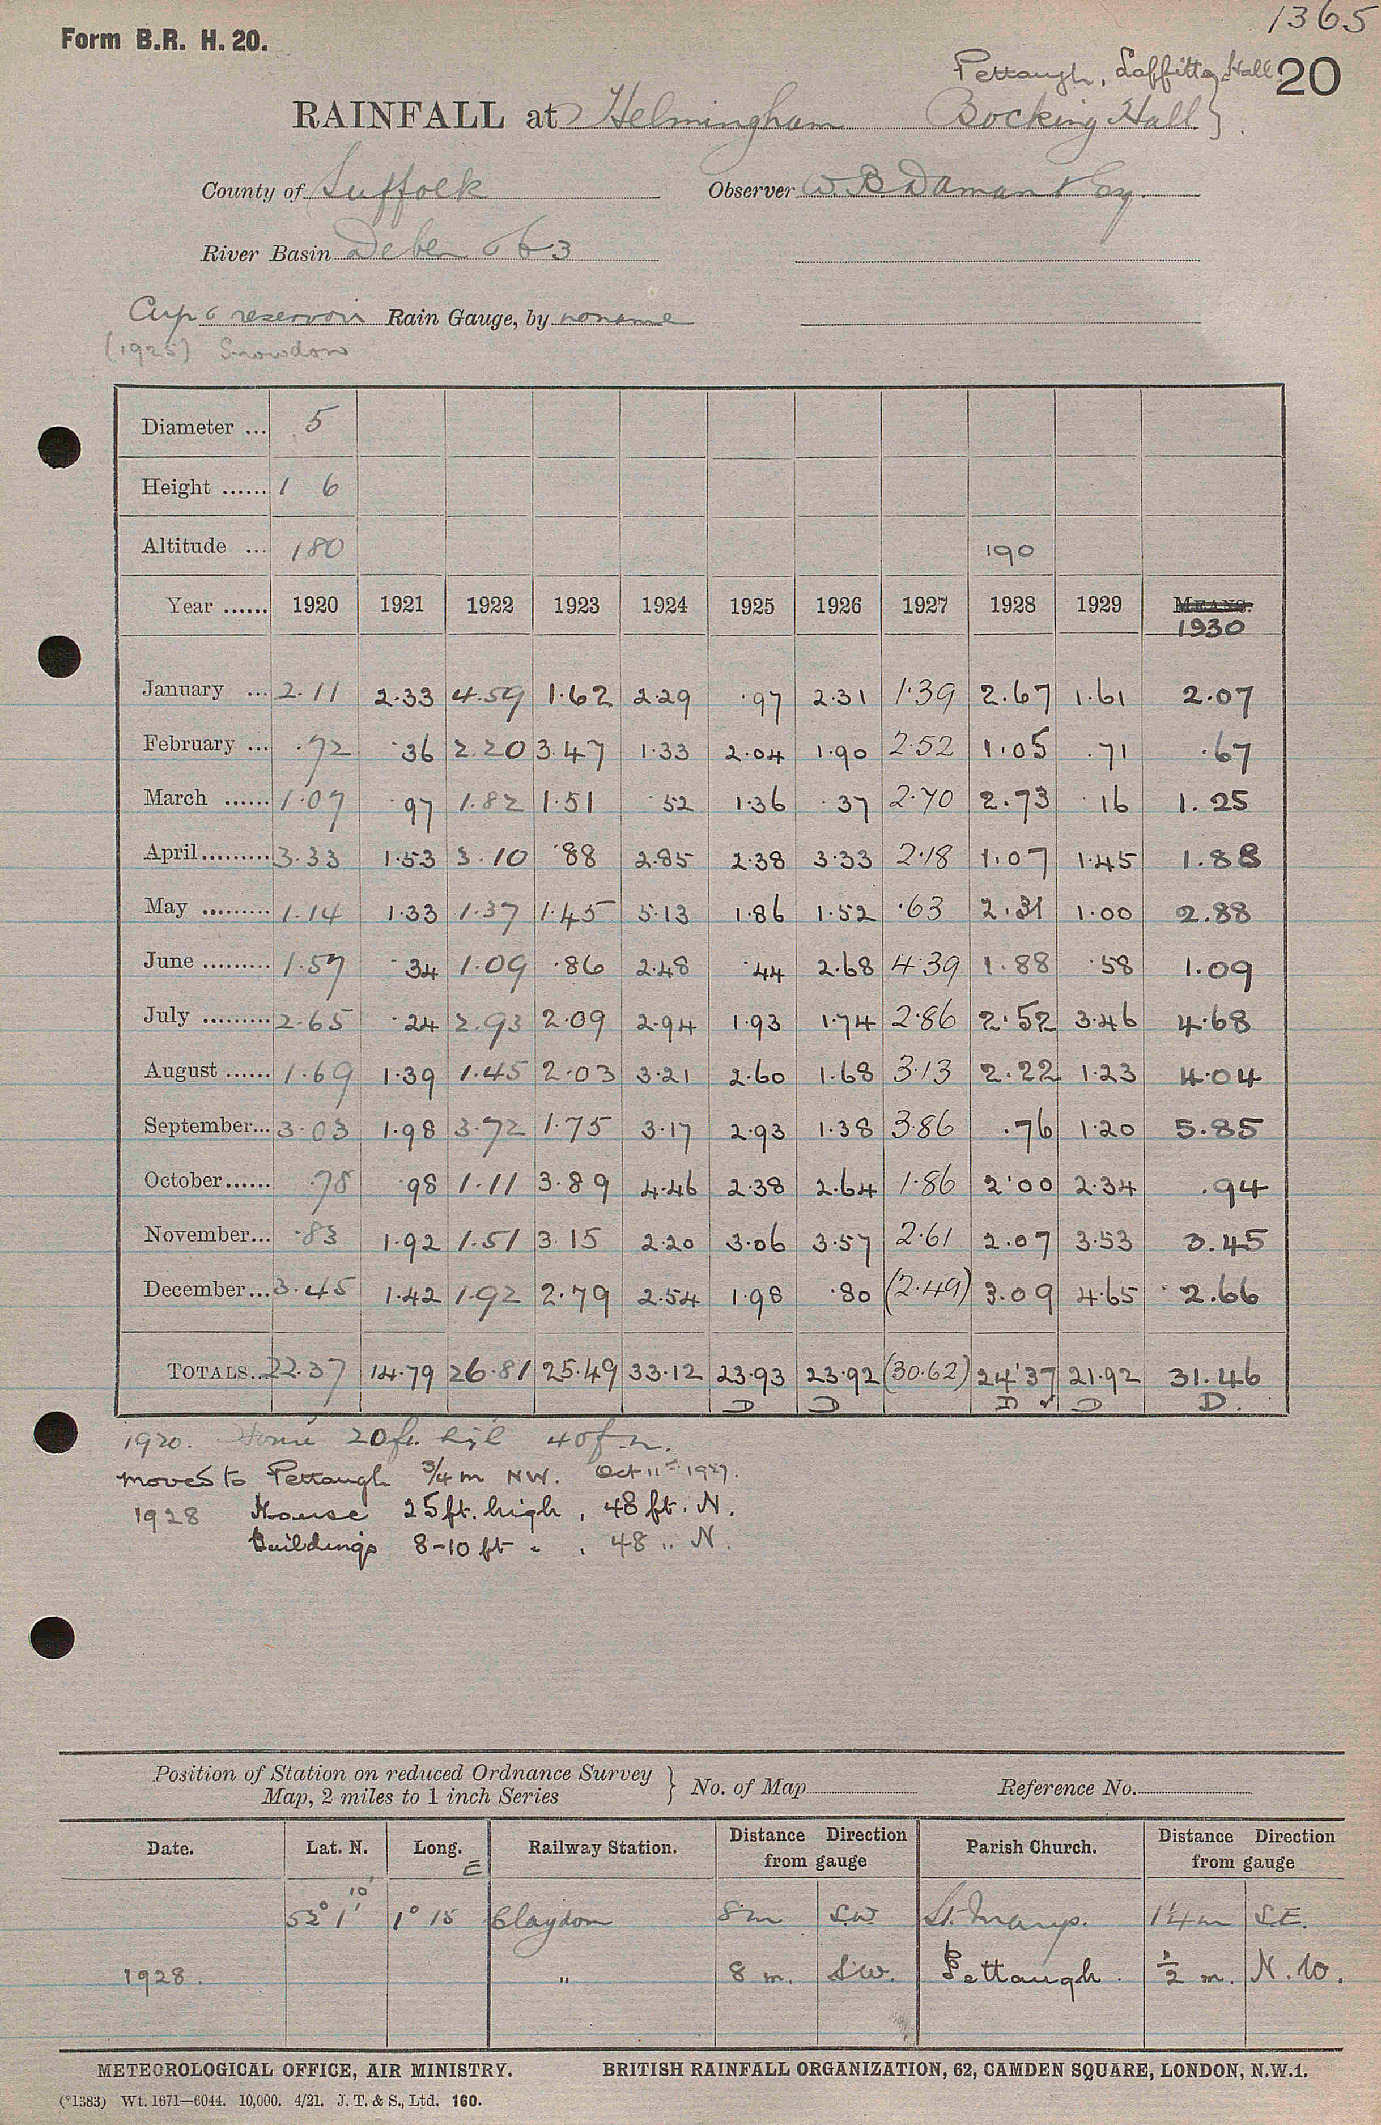 1365
Form B.R. H. 20.
Pettaugh, Laffitts Hall 20
RAINFALL at Helmingham Bocking Hall }
County of Suffolk Observer W B Damant Esq.
River Basin Deben 663
Cup & reservoir Rain Gauge, by noname
(1925) Snowdon
Diameter ... 5
Height ...... 1 6
Altitude ... 180 190
Year ...... 1920 1921 1922 1923 1924 1925 1926 1927 1928 1929 MEANS.
1930
January ... 2.11 2.33 4.59 1.62 2.29 .97 2.31 1.39 2.67 1.61 2.07
February ... .72 .36 2.20 3.47 1.33 2.04 1.90 2.52 1.05 .71 .67
March ...... 1.07 .97 1.82 1.51 .52 1.36 .37 2.70 2.73 .16 1.25
April ......... 3.33 1.53 3.10 .88 2.85 2.38 3.33 2.18 1.07 1.45 1.88
May ......... 1.14 1.33 1.37 1.45 5.13 1.86 1.52 .63 2.31 1.00 2.88
June ......... 1.57 .34 1.09 .86 2.48 .44 2.68 4.39 1.88 .58 1.09
July ......... 2.65 .24 2.93 2.09 2.94 1.93 1.74 2.86 2.52 3.46 4.68
August ...... 1.69 1.39 1.45 2.03 3.21 2.60 1.68 3.13 2.22 1.23 4.04
September... 3.03 1.98 3.72 1.75 3.17 2.93 1.38 3.86 .76 1.20 5.85
October...... .78 .98 1.11 3.89 4.46 2.38 2.64 1.86 2.00 2.34 .94
November... .83 1.92 1.51 3.15 2.20 3.06 3.57 2.61 2.07 3.53 3.45
December... 3.45 1.42 1.92 2.79 2.54 1.98 .80 (2.49) 3.09 4.65 2.66
TOTALS... 22.37 14.79 26.81 25.49 33.12 23.93 23.92 (30.62) 24.37 21.92 31.46
D D D ✓ D D.
1920. 20ft. high 40ft N.
moved to Pettaugh 3/4 m NW. Oct 11st 1927.
1928 House 25 ft. high, 48 ft. N.
Buildings 8-10 ft " , 48 " N.
Position of Station on reduced Ordnance Survey
Map, 2 miles to 1 inch Series } No. of Map Reference No.
Date. Lat. N. Long. E Railway Station. Distance Direction from gauge Parish Church. Distance Direction from gauge
10'
52° 1' 1° 15 Claydon 8m S.W St. Marys. 1¼ m S.E.
1928. " 8 m. S.W. Pettaugh. ½ m. N.W.
METEOROLOGICAL OFFICE, AIR MINISTRY. BRITISH RAINFALL ORGANIZATION, 62, CAMDEN SQUARE, LONDON, N.W.1.
(*1383) Wt. 1671—6044. 10,000. 4/21. J. T. & S., Ltd. 160.